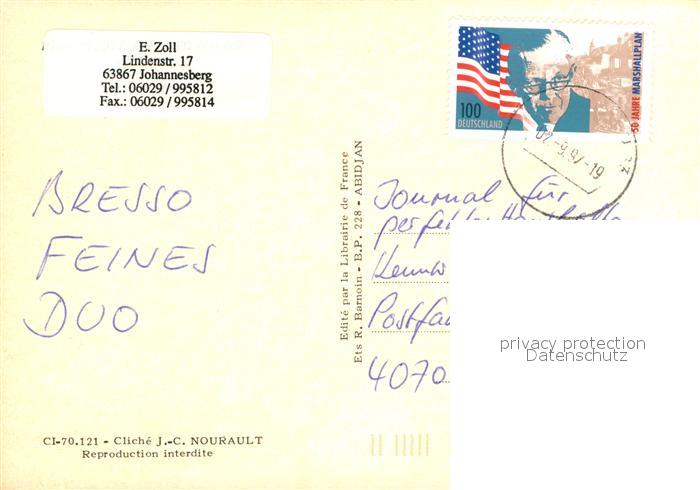 E. Zoll
Lindenstr. 17
63867 Johannesberg
Tel.: 06029 / 995812
Fax.: 06029 / 995814
100
DEUTSCHLAND
50 JAHRE MARSHALLPLAN
02.-9.97-19
BRESSO
FEINES
DUO
Edité par la Librairie de France
Ets R. Barnoin - B.P. 228 - ABIDJAN
Journal für
Postfa
4070
privacy protection
Datenschutz
CI-70.121 - Cliché J.-C. NOURAULT
Reproduction interdite